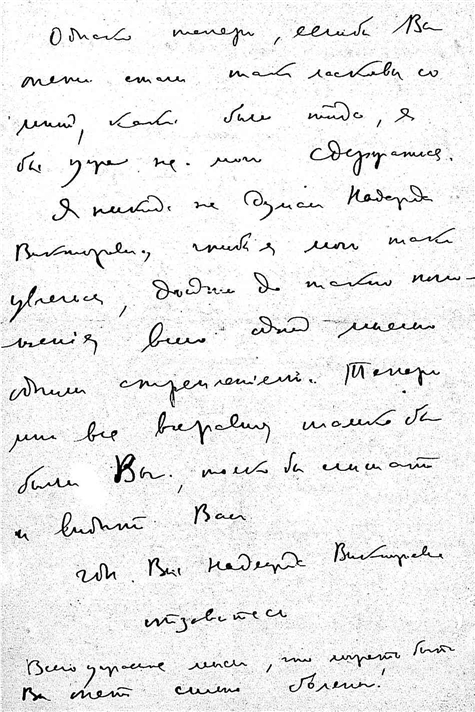 Однако теперь, если бы Вы
опять стали такъ ласковы со
мной, какъ были тогда, я
бы уже не могъ сдержаться.
Я никогда не думалъ Надежда
Викторовна чтобъ я могъ такъ
увлечься, дойдти до такого поло-
женія всего одной мыслью
однимъ стремленіемъ. Теперь
мнѣ все все равно только бы
были Вы, только бы слышать
и видѣть Васъ
Вы Надежда Викторовна
отзовитесь
Всего ужаснѣе мысль, что можетъ быть
Вы опять сильно больны!